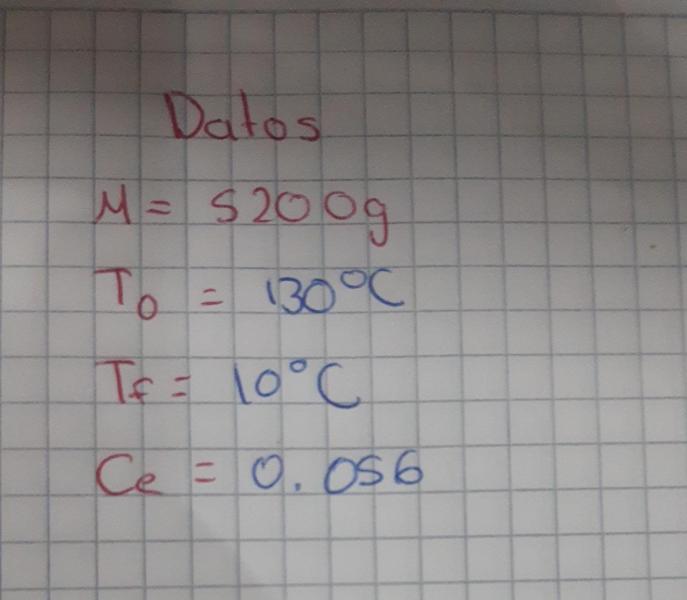 Datos
M = 5200g
To = 130°C
Tf = 10°C
Ce = 0.056